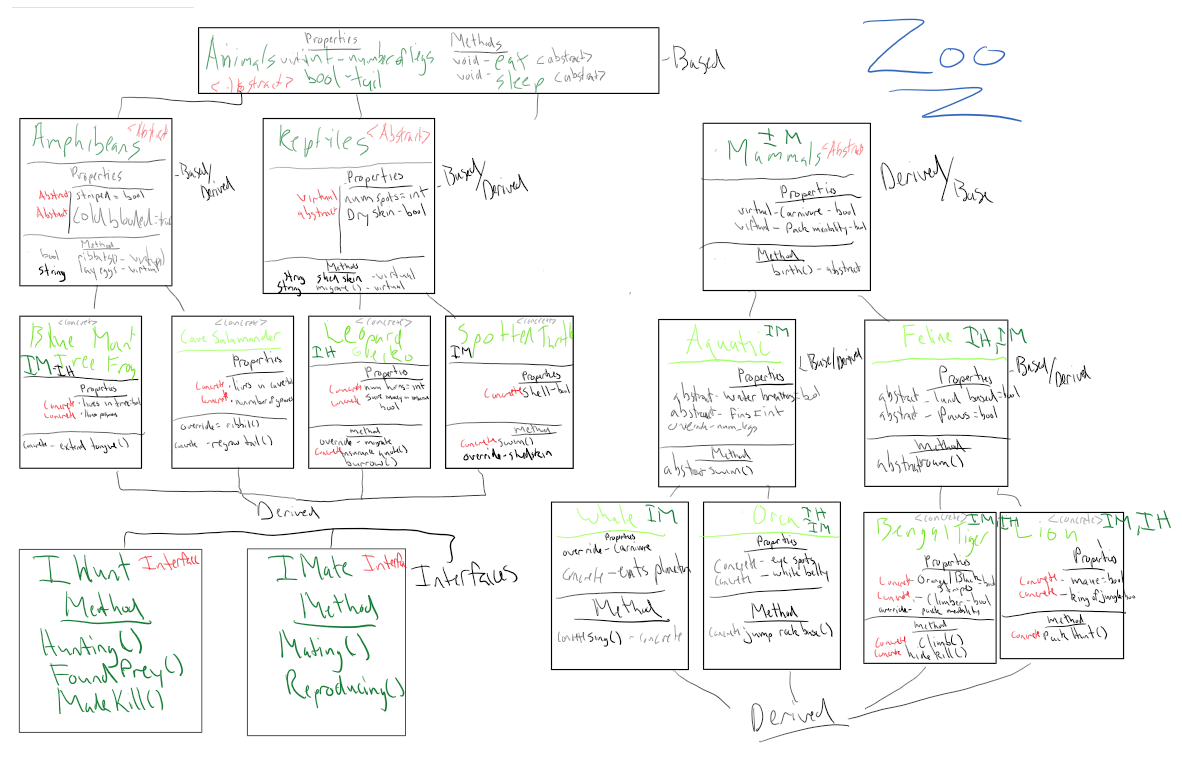 Zoo
Animals
<Abstract>
Properties
int - number of legs
bool - tail
Methods
void - eat <abstract>
void - sleep <abstract>
Based
Amphibeans
<Abstract
Properties
Abstract striped = bool
Abstract Cold blooded = true
Method
bool ribbit() - virtual
string lay eggs - virtual
Based/
Derived
Reptiles
<Abstract>
Properties
virtual num spots = int
abstract Dry skin - bool
Methods
string shed skin - virtual
string migrate() - virtual
Based/
Derived
IM
Mammals
<Abstract
Properties
virtual - Carnivore - bool
virtual - Pack mentality - bool
Method
birth() - abstract
Derived/
Base
<concrete>
Blue Mount
Tree Frog
IM-IH
Properties
Concrete · lives in tree = bool
Concrete
Method
Concrete - extend tongue()
<concrete>
Cave Salamander
Properties
Concrete · lives in cave = bool
Concrete
override = ribbit()
Concrete - regrow tail()
<concrete>
Leopard
Gheko
IH
Properties
Concrete num
Concrete
bool
method
override - migrate
Concrete
burrow()
<concrete>
Spotted Turtle
IM
Properties
Concrete shell - bool
Method
Concrete swim()
override - shedskin
Derived
Aquatic
IM
Properties
abstract - water breathing = bool
abstract - Fins = int
override - num_legs
Method
abstract swim()
Base/Derived
Feline
IH, IM
Properties
abstract - land based = bool
abstract - Paws = bool
method
abstract roam()
Based/
Derived
Whale
IM
Properties
override - Carnivore
Concrete - eats plancton
Method
Concrete sing() - concrete
Orca
IH
IM
Properties
Concrete - eye spots
Concrete - white belly
Method
Concrete jump
<concrete>
Bengal Tiger
IM, IH
Properties
Concrete - Orange/Black - bool
stripes
Concrete - Climber - bool
override - pack mentality
method
Concrete Climb()
Concrete hide kill()
<concrete>
Lion
IM, IH
Properties
Concrete - mane = bool
Concrete - king of jungle = bool
method
Concrete pack Hunt()
Derived
I Hunt
Interface
Method
Hunting()
Found Prey()
Made Kill()
I Mate
Interfac
Method
Mating()
Reproducing()
Interfaces